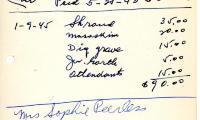 Paid 5-29-45
1-9-45 Shroud 35.00
20.00
Dig grave 15.00
5.00
Attendants 15.00
$90.00
Mrs Sophie Peerless